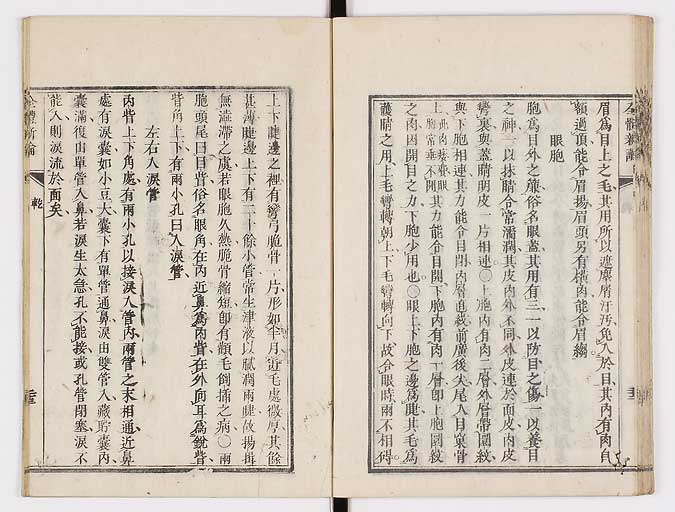 眉爲目上之毛其用所以遮塵屑汗汚免入於目其內有肉自
額過頂能令眉揚眉頭另有橫肉能令眉縐
眼胞
胞爲目外之簾俗名眼蓋其用有三一以防目之傷一以養目
之神一以抹睛令常濡潤其皮內外不同外皮連於面皮內皮
彎裏與蓋睛明皮一片相連○上胞內有肉二層外層帶圍紋
與下胞相連其力能令目閉內層直紋前廣後尖尾入目窠骨
上此肉痿叠眼上胞常垂不開其力能令目開下胞內有肉一層卽上胞圍紋
之肉因開目之力下胞少用也○眼上下胞之邊爲睫其毛爲
護睛之用上毛彎轉朝上下毛彎轉向下故合眼時兩不相礙
上下睫邊之裡有彎弓脆骨一片形如半月近毛處微厚其餘
甚薄睫邊上下有二十餘小管常生津液以膩潤兩睫故揚揖
無澁滯之虞若眼胞久熱脆骨縮短卽有顴毛倒插之病○兩
胞頭尾曰目眥俗名眼角在內近鼻爲內眥在外向耳爲銳眥
眥角上下有兩小孔曰入淚管
左右入淚管
內眥上下角處有兩小孔以接淚入管內兩管之末相通近鼻
處有淚囊如小豆大囊下有單管通鼻淚由雙管入藏貯囊內
囊滿復由單管入鼻若淚生太急孔不能接或孔管閉塞淚不
能入則淚流於面矣
全體新論
乾